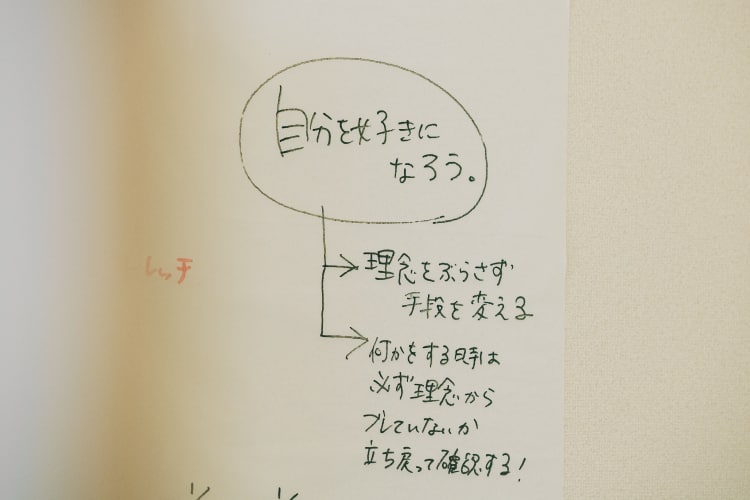 自分を好きに
なろう。
理念をぶらさず
手段を変える
何かをする時は
必ず理念から
ブレていないか
立ち戻って確認する!